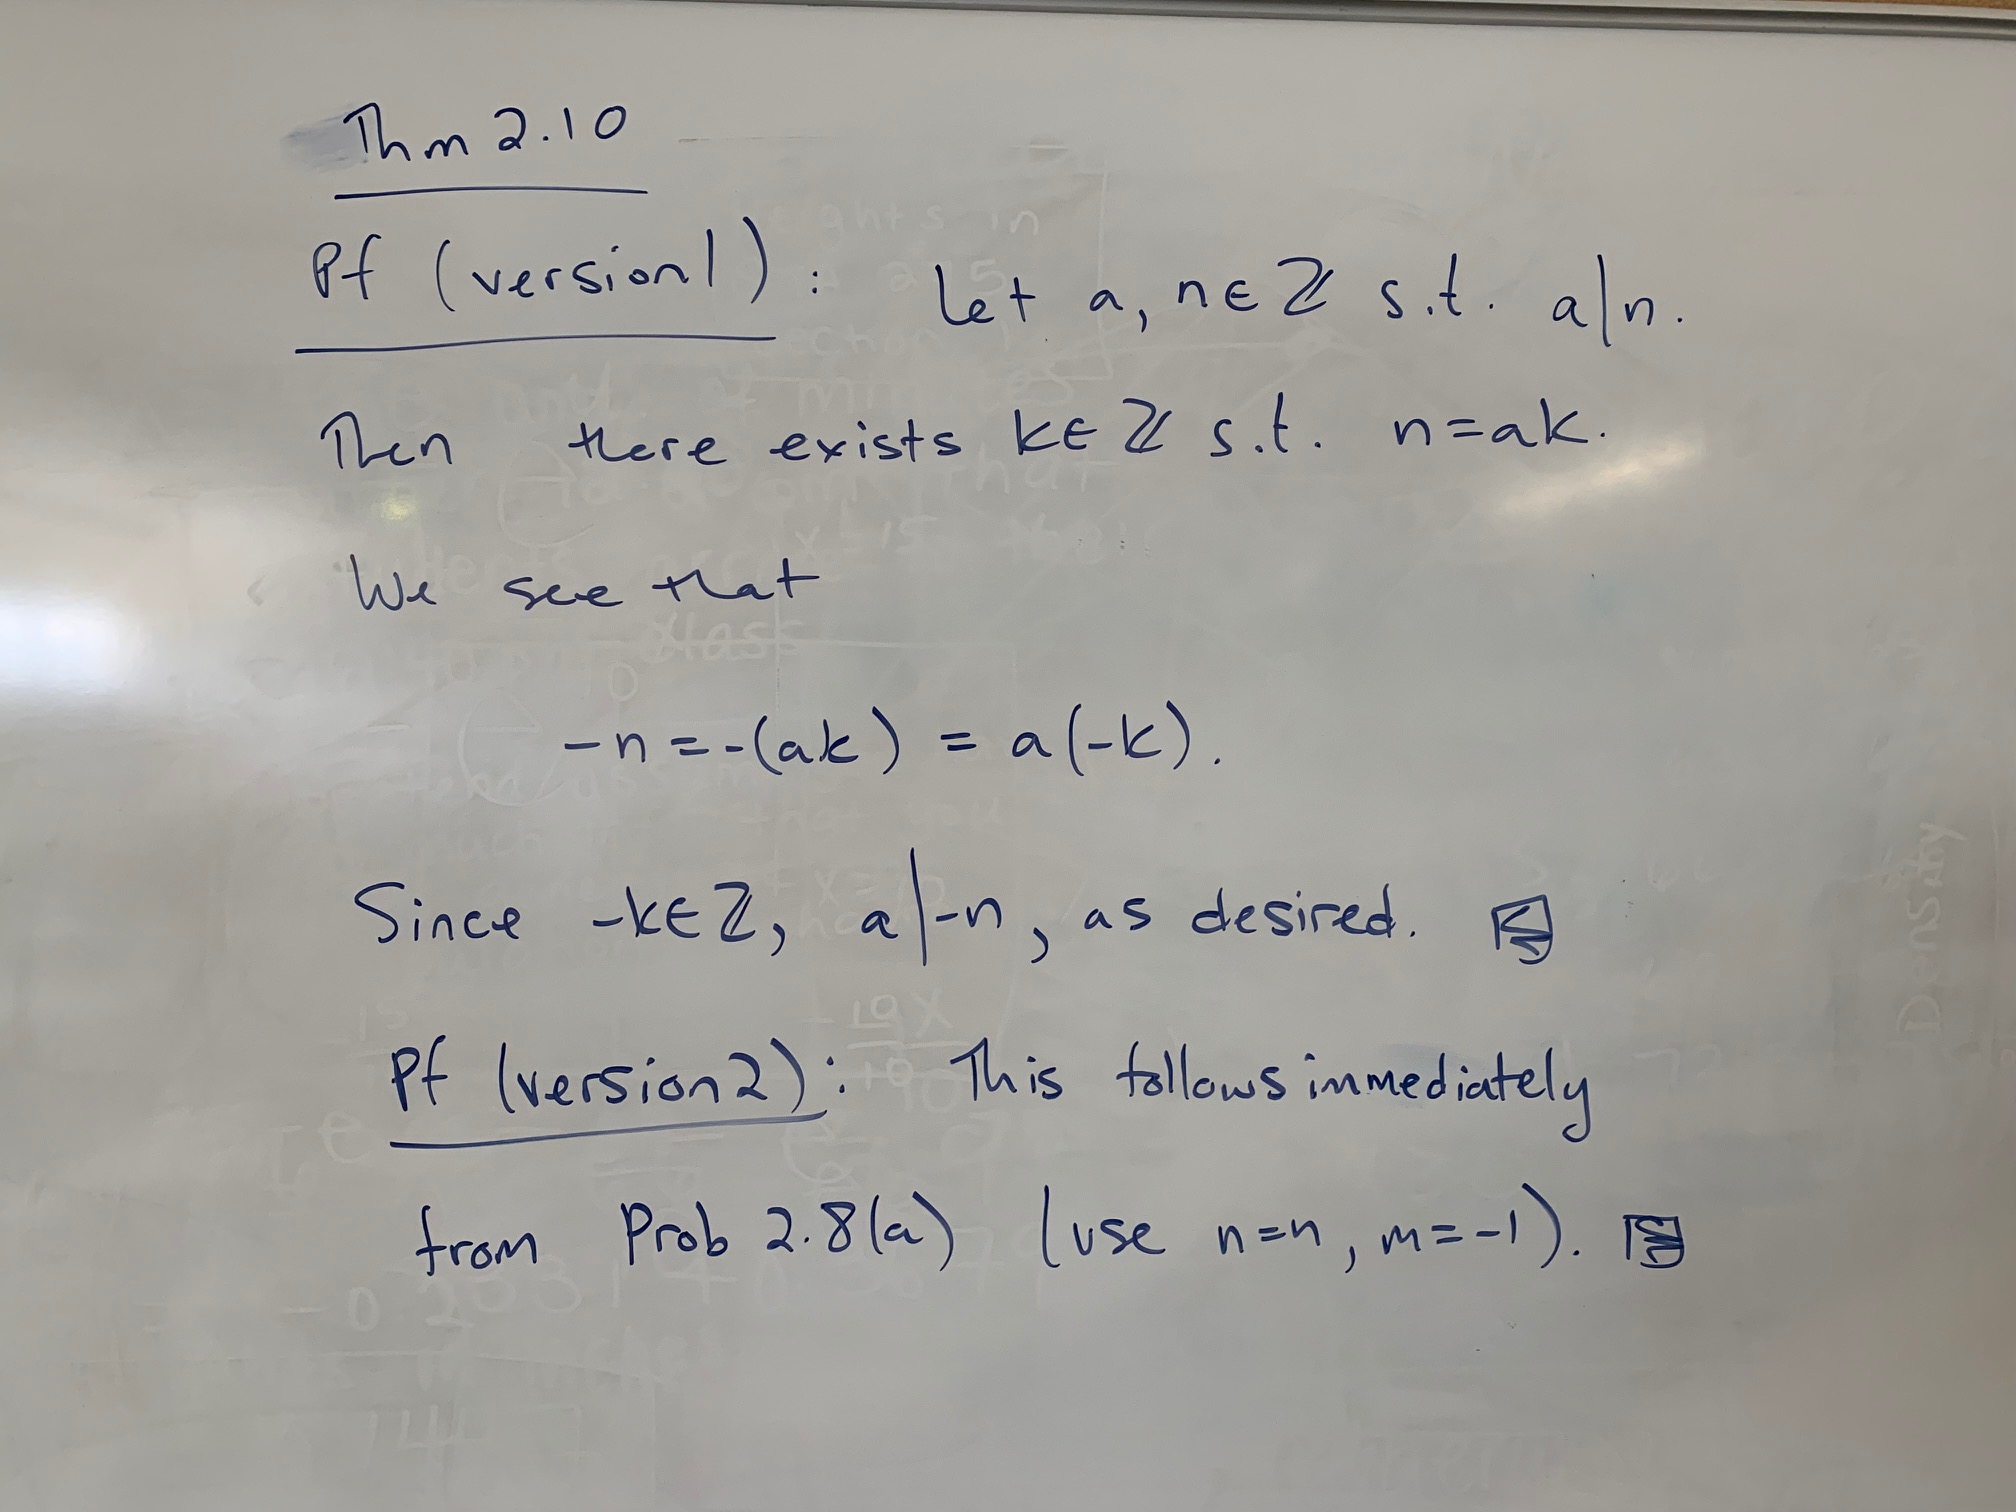 Thm 2.10
Pf (version 1): Let a, n∈ℤ s.t. a|n.
Then there exists k∈ℤ s.t. n=ak.
We see that
-n=-(ak) = a(-k).
Since -k∈ℤ, a|-n, as desired.
Pf (version 2): This follows immediately
from Prob 2.8(a) (use n=n, m=-1).
Density